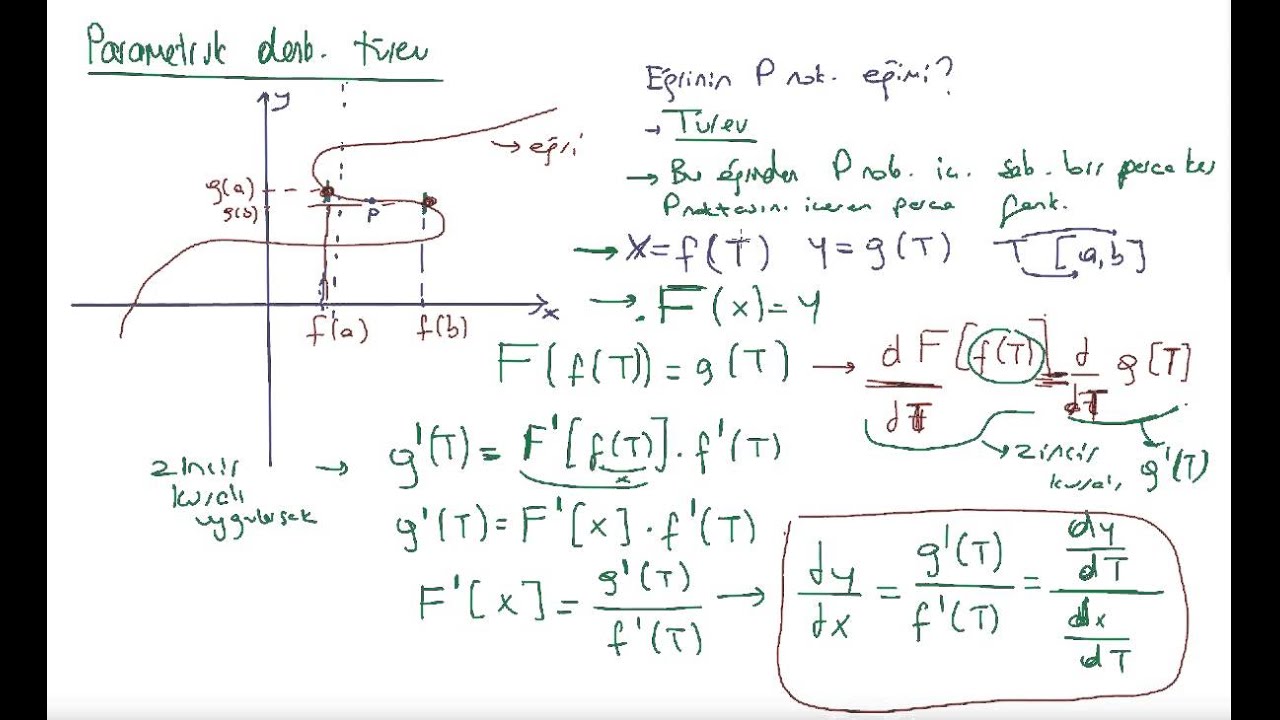 Parametrik denk. türev
y
Eğrinin P nok. eğimi?
→ eğri
→ Türev
g(a)
→ Bu eğriden P nok. iç. sab. bir parça kes
g(b)
P
P noktasını içeren parça fonk.
→ x=f(T) y=g(T) T [a,b]
x
→ F(x)=y
f(a) f(b)
F(f(T))=g(T) → dF[f(T)]/dT = d/dT g[T]
→ zincir kuralı g'(T)
zincir kuralı uygularsak → g'(T)=F'[f(T)].f'(T)
x
g'(T)=F'[x].f'(T)
F'[x]=g'(T)/f'(T) → dy/dx = g'(T)/f'(T) = (dy/dT)/(dx/dT)